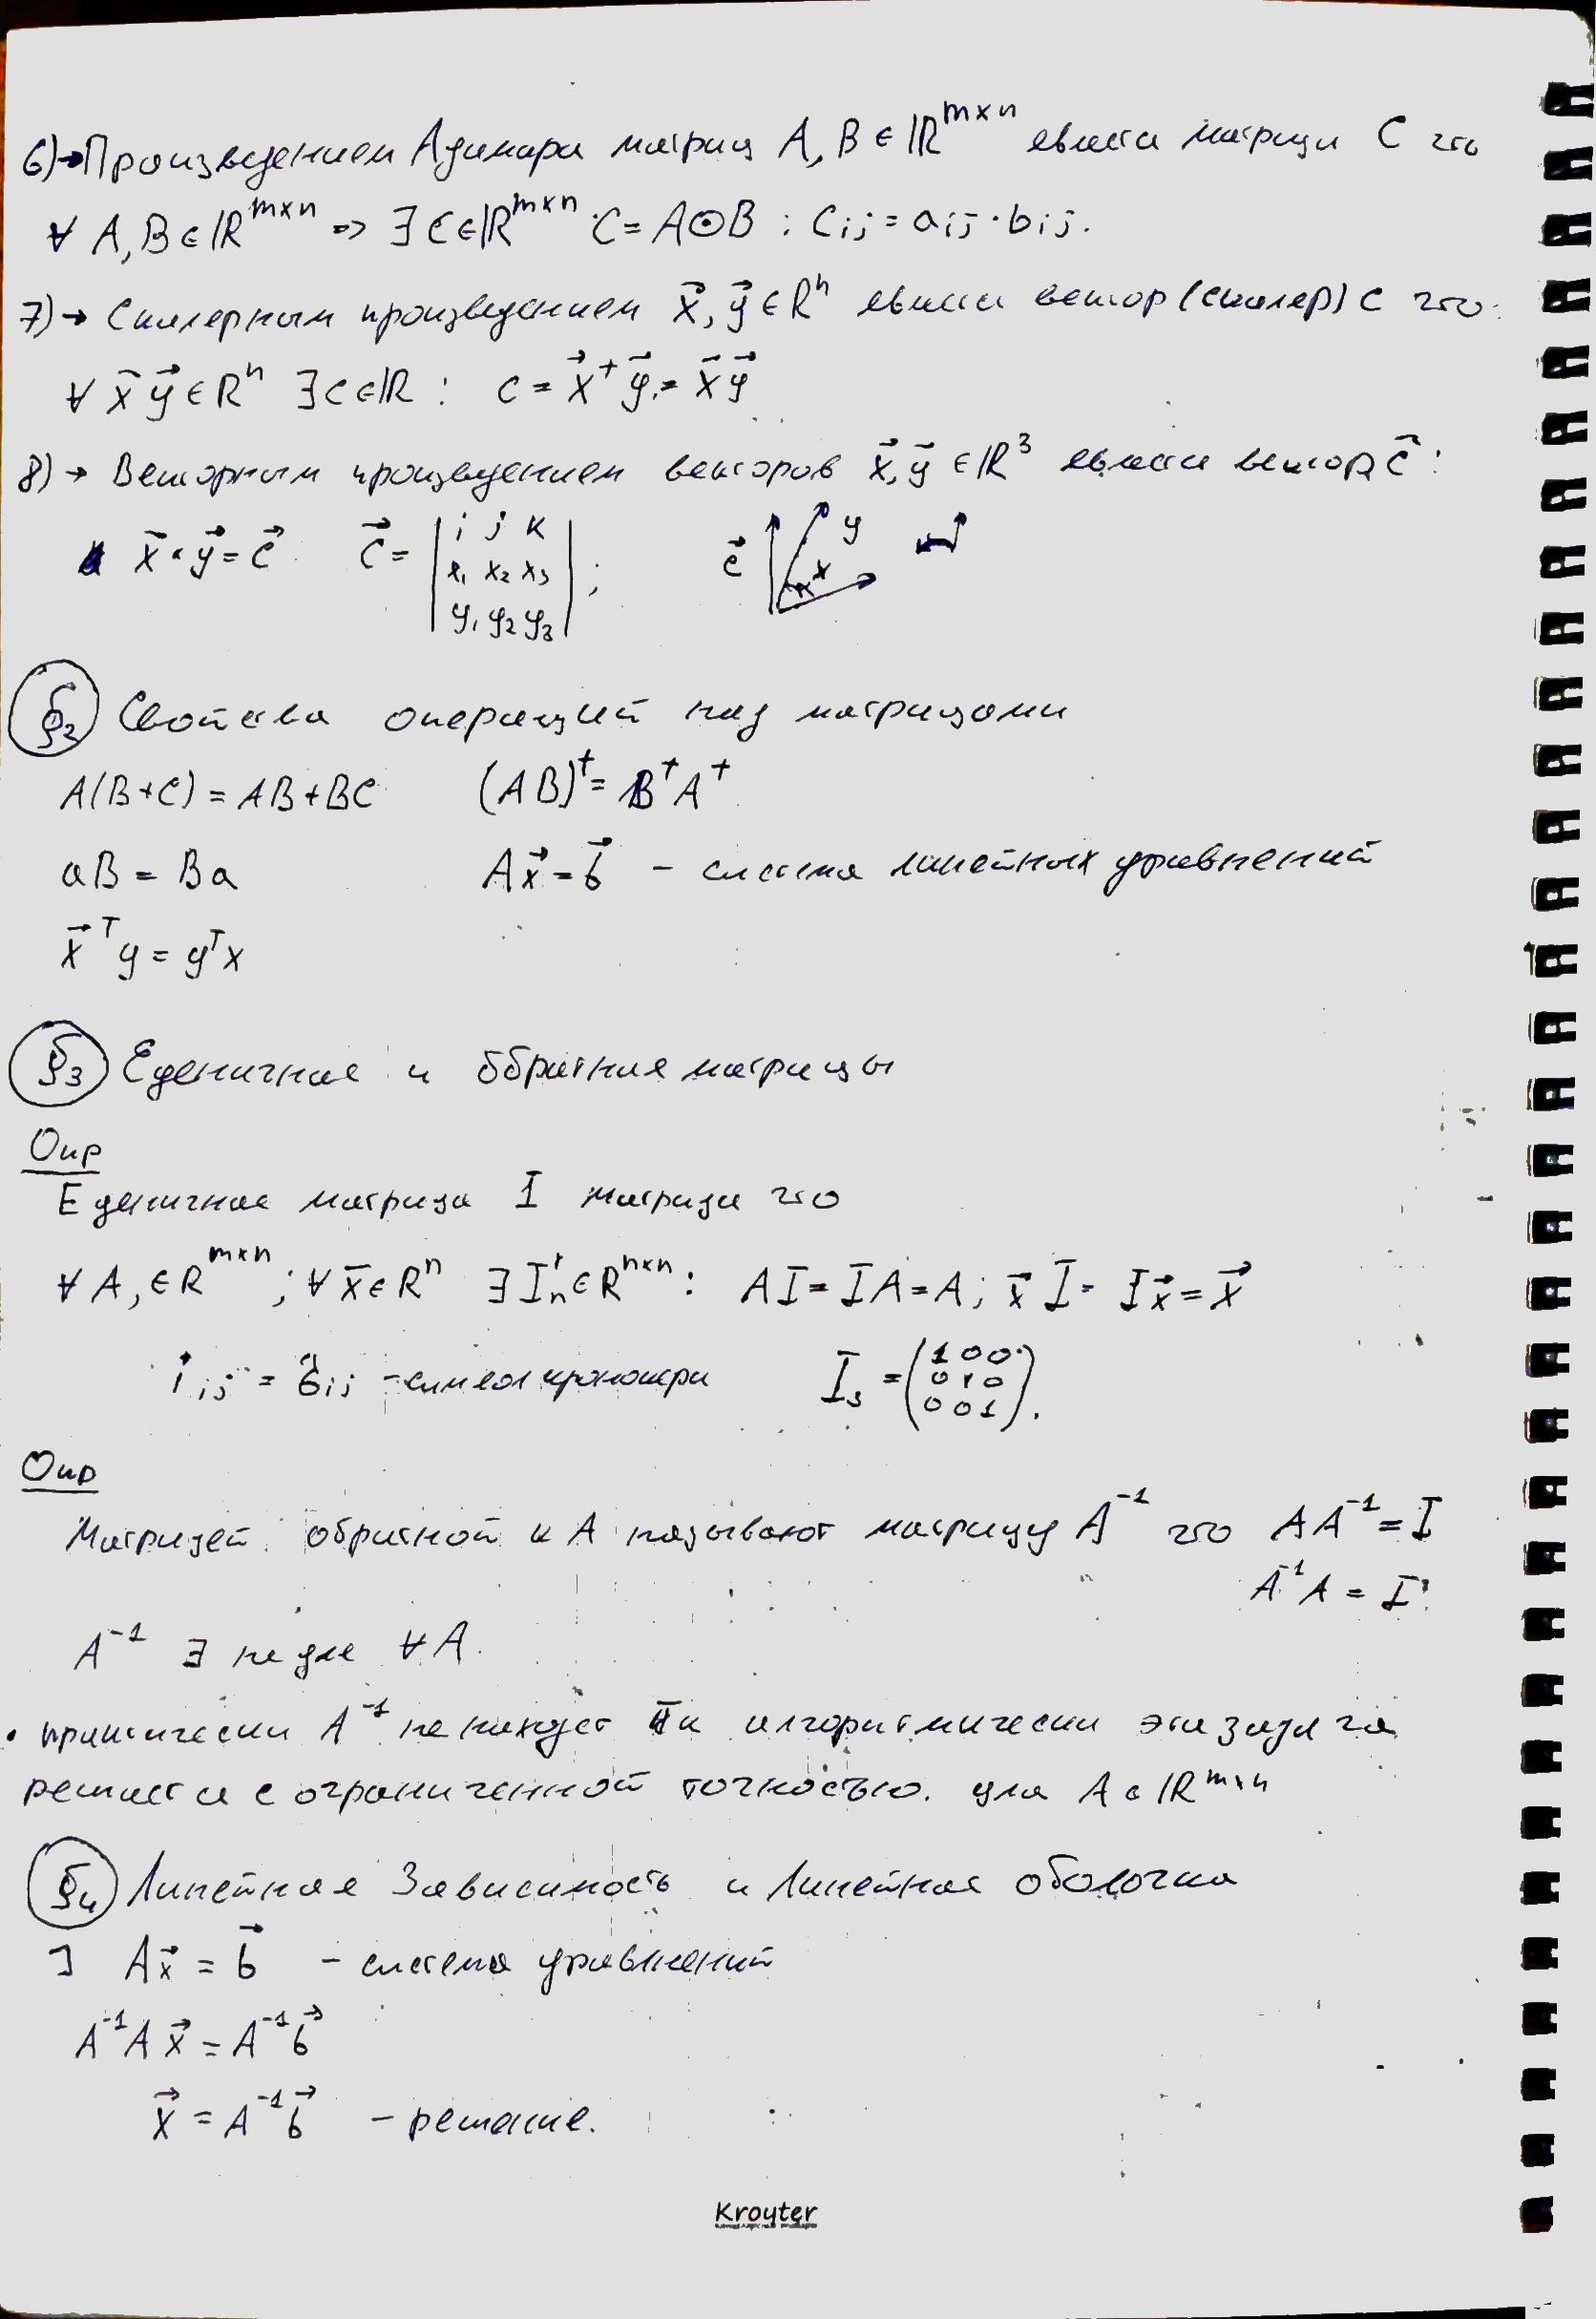 6)→Произведением Адамара матриц A, B ∈ ℝᵐˣⁿ явлется матрица C что
∀ A, B ∈ ℝᵐˣⁿ => ∃ C∈ℝᵐˣⁿ C = A⊙B : Cᵢⱼ = aᵢⱼ · bᵢⱼ.
7)→ Скалярным произведением x⃗, y⃗ ∈ Rⁿ явлется вектор (скаляр) C что:
∀ x⃗ y⃗ ∈ Rⁿ ∃ C ∈ ℝ : C = x⃗ᵀ y⃗ = x⃗ y⃗
8)→ Векторным произведением векторов x⃗, y⃗ ∈ ℝ³ явлется вектор c⃗ :
x⃗ × y⃗ = c⃗ c⃗ = | i j k | ;
| x₁ x₂ x₃ |
| y₁ y₂ y₃ |
c⃗ y x
§2 Свойства операций над матрицами
A(B+C) = AB+BC (AB)ᵀ = BᵀAᵀ
aB = Ba Ax⃗ = b⃗ – система линейных уравнений
x⃗ᵀ y = yᵀ x
§3 Еденичная и Обратная матрицы
Опр
Еденичная матрица I матрица что
∀ A, ∈ Rᵐˣⁿ ; ∀ x̄ ∈ Rⁿ ∃ Iₙ ∈ Rⁿˣⁿ : AI = IA = A; x⃗ I = I x⃗ = x⃗
iᵢⱼ = δᵢⱼ – символ кронекера I₃ = (1 0 0
0 1 0
0 0 1).
Опр
Матрицей обратной к A называют матрицу A⁻¹ что AA⁻¹ = I
A⁻¹A = I
A⁻¹ ∃ не для ∀ A.
• практически A⁻¹ не находят Тк алгоритмически эта задача
решается с ограниченной точностью. для A ∈ ℝᵐˣⁿ
§4 Линейная Зависимость и Линейная оболочка
] Ax⃗ = b⃗ – система уравнений
A⁻¹A x⃗ = A⁻¹b⃗
x⃗ = A⁻¹b⃗ – решение.
Kroyter